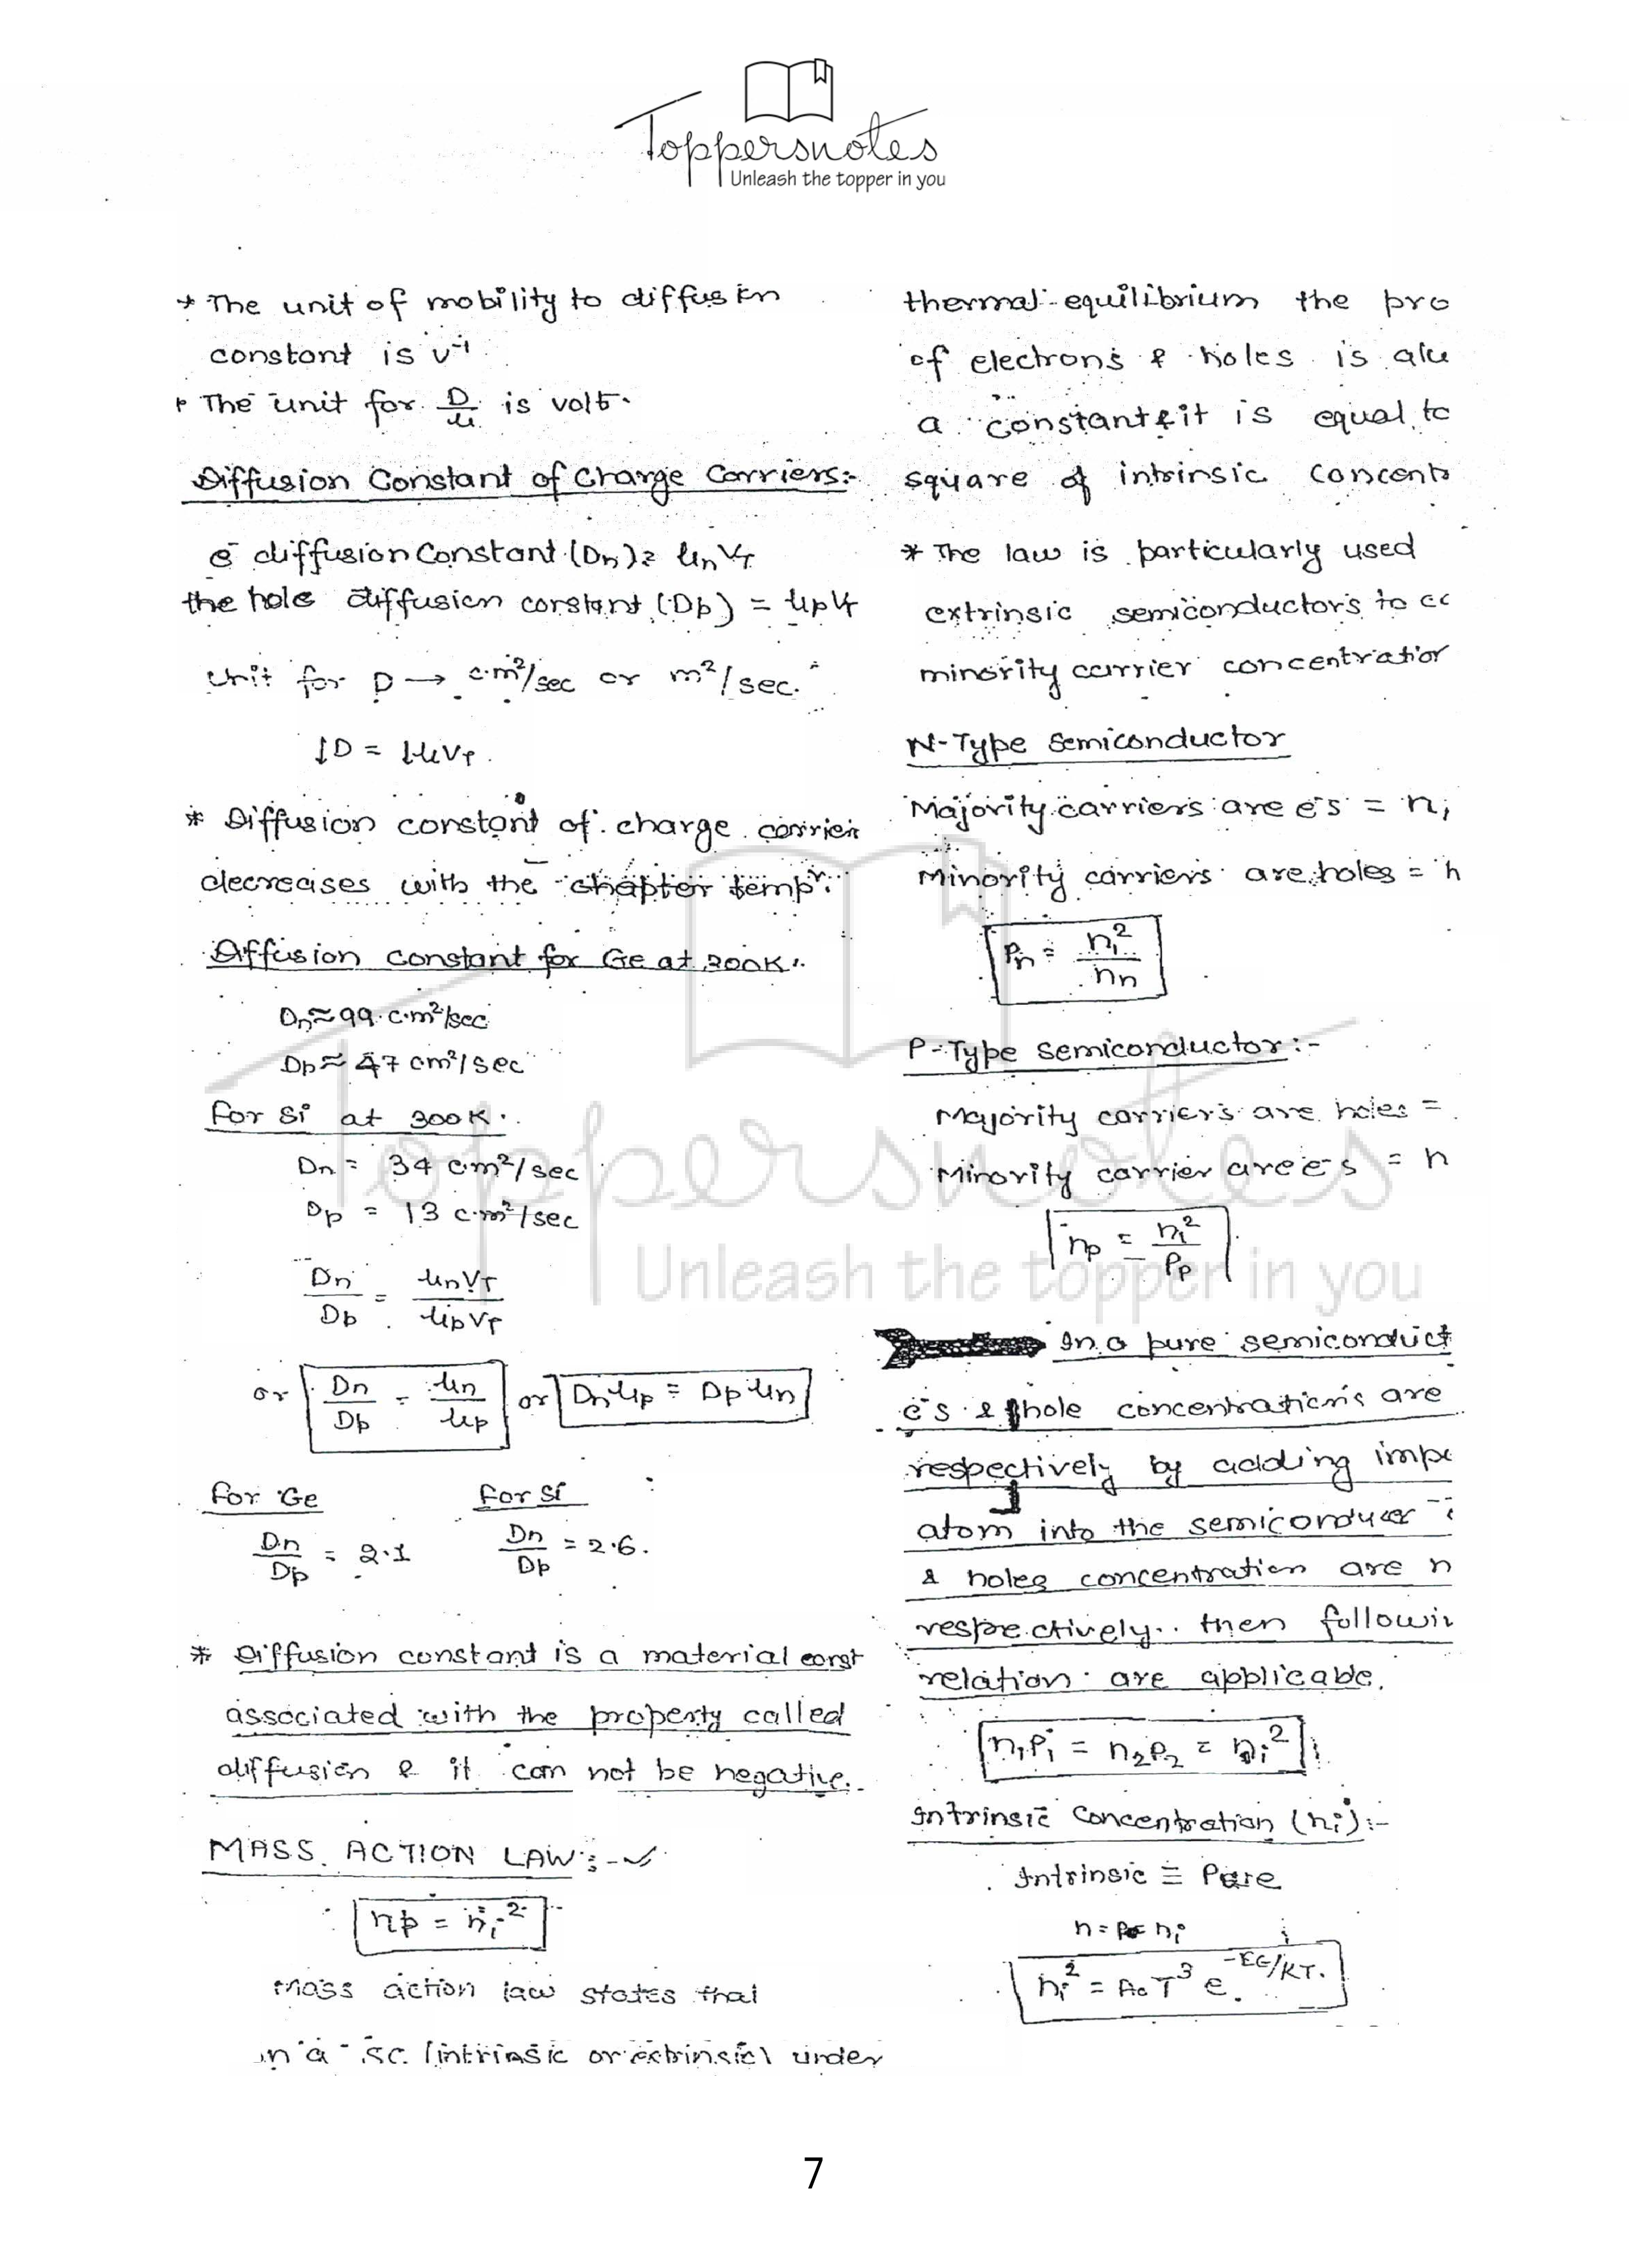 Toppersnotes
Unleash the topper in you
* The unit of mobility to diffusion
constant is v⁻¹.
* The unit for D/μ is volt.
Diffusion Constant of Charge Carriers:-
e⁻ diffusion Constant (Dn) = μn VT
the hole diffusion constant (Dp) = μp VT
Unit for D → cm²/sec or m²/sec.
↓D = ↓μVT.
* Diffusion constant of charge carrier
decreases with the temp^r.
Diffusion constant for Ge at 300K:
Dn ≈ 99 cm²/sec
Dp ≈ 47 cm²/sec
For Si at 300K.
Dn = 34 cm²/sec
Dp = 13 cm²/sec
Dn/Dp = μnVT/μpVT
or Dn/Dp = μn/μp or Dnμp = Dpμn
For Ge For Si
Dn/Dp = 2.1 Dn/Dp = 2.6.
* Diffusion constant is a material const
associated with the property called
diffusion & it can not be negative.
MASS ACTION LAW:-
np = ni²
Mass action law states that
in a SC (intrinsic or extrinsic) under
thermal equilibrium the pro
of electrons & holes is alw
a constant & it is equal to
square of intrinsic concentr
* The law is particularly used
extrinsic semiconductors to cc
minority carrier concentration
N-Type Semiconductor
Majority carriers are e⁻s = n
Minority carriers are holes =
Pn = ni²/nn
P-Type semiconductor:-
Majority carriers are holes =
Minority carrier are e⁻s = n
np = ni²/Pp
In a pure semiconduct
e⁻s & hole concentrations are
respectively by adding impu
atom into the semiconducer
& holes concentration are n
respectively. then followin
relation are applicable.
n1P1 = n2P2 = ni²
Intrinsic Concentration (ni):-
Intrinsic ≡ Pure
n = p = ni
ni² = A₀T³ e^-EG/KT.
7